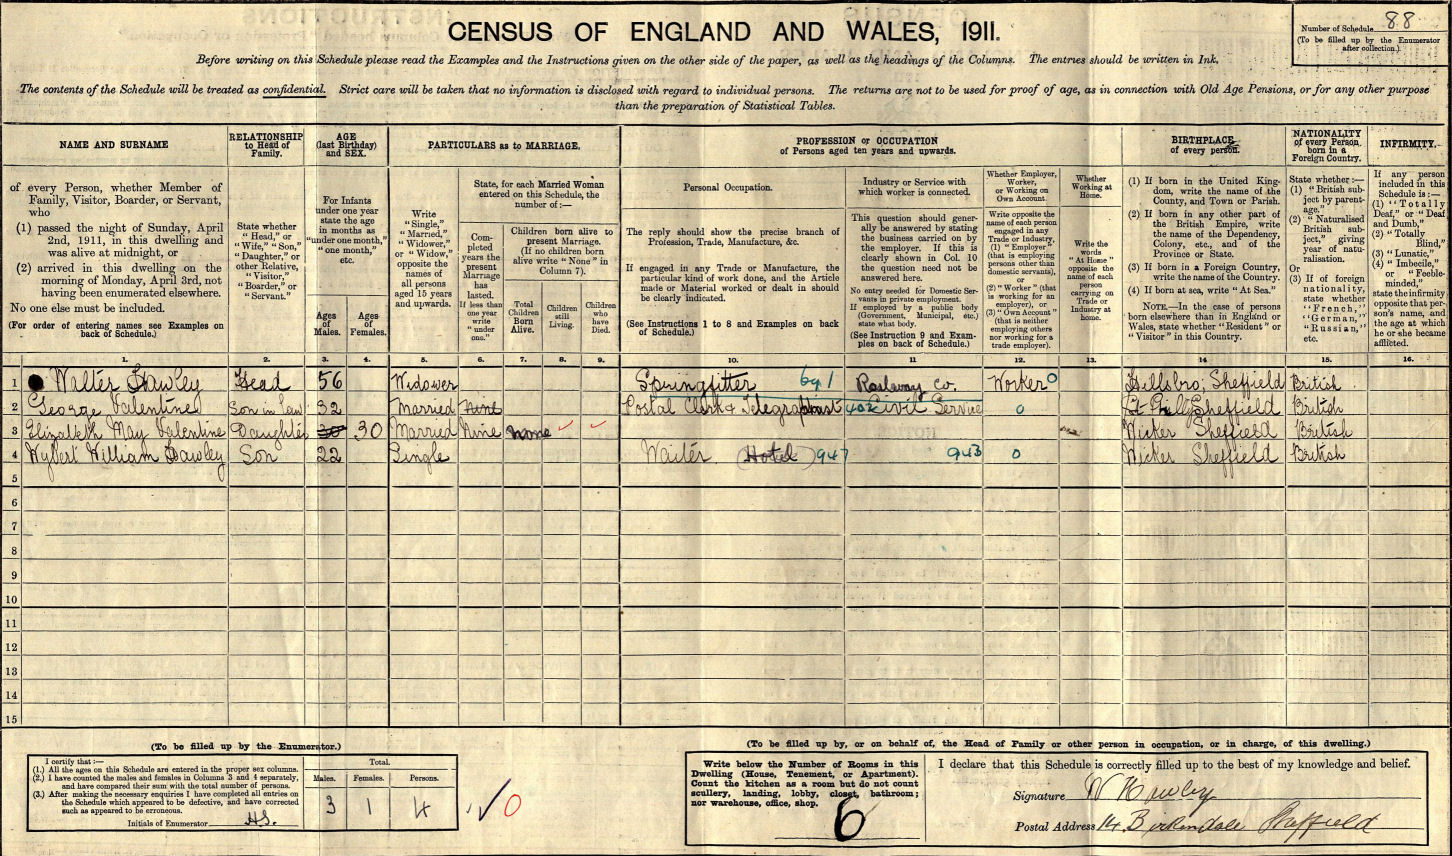 CENSUS OF ENGLAND AND WALES, 1911.
Number of Schedule 88
(To be filled up by the Enumerator after collection.)
Before writing on this Schedule please read the Examples and the Instructions given on the other side of the paper, as well as the headings of the Columns. The entries should be written in Ink.
The contents of the Schedule will be treated as confidential. Strict care will be taken that no information is disclosed with regard to individual persons. The returns are not to be used for proof of age, as in connection with Old Age Pensions, or for any other purpose
than the preparation of Statistical Tables.
NAME AND SURNAME
of every Person, whether Member of
Family, Visitor, Boarder, or Servant,
who
(1) passed the night of Sunday, April
2nd, 1911, in this dwelling and
was alive at midnight, or
(2) arrived in this dwelling on the
morning of Monday, April 3rd, not
having been enumerated elsewhere.
No one else must be included.
(For order of entering names see Examples on
back of Schedule.)
RELATIONSHIP
to Head of
Family.
State whether
"Head," or
"Wife," "Son,"
"Daughter," or
other Relative,
"Visitor,"
"Boarder," or
"Servant."
AGE
(last Birthday)
and SEX.
For Infants
under one year
state the age
in months as
"under one month,"
"one month,"
etc.
Ages
of
Males.
Ages
of
Females.
PARTICULARS as to MARRIAGE.
Write
"Single,"
"Married,"
"Widower,"
or "Widow,"
opposite the
names of
all persons
aged 15 years
and upwards.
State, for each Married Woman
entered on this Schedule, the
number of:—
Com-
pleted
years the
present
Marriage
has
lasted.
If less than
one year
write
"under
one."
Children born alive to
present Marriage.
(If no children born
alive write "None" in
Column 7).
Total
Children
Born
Alive.
Children
still
Living.
Children
who
have
Died.
PROFESSION or OCCUPATION
of Persons aged ten years and upwards.
Personal Occupation.
The reply should show the precise branch of
Profession, Trade, Manufacture, &c.
If engaged in any Trade or Manufacture, the
particular kind of work done, and the Article
made or Material worked or dealt in should
be clearly indicated.
(See Instructions 1 to 8 and Examples on back
of Schedule.)
Industry or Service with
which worker is connected.
This question should gener-
ally be answered by stating
the business carried on by
the employer. If this is
clearly shown in Col. 10
the question need not be
answered here.
No entry needed for Domestic Ser-
vants in private employment.
If employed by a public body
(Government, Municipal, etc.)
state what body.
(See Instruction 9 and Exam-
ples on back of Schedule.)
Whether Employer,
Worker,
or Working on
Own Account.
Write opposite
the name of each person
engaged in any
Trade or Industry,
(1) "Employer"
(that is employing
persons other than
domestic servants),
or
(2) "Worker" (that
is working for an
employer), or
(3) "Own Account"
(that is neither
employing others
nor working for a
trade employer).
Whether
Working at
Home.
Write the
words
"At Home"
opposite the
name of each
person
carrying on
Trade or
Industry at
home.
BIRTHPLACE
of every person.
(1) If born in the United King-
dom, write the name of the
County, and Town or Parish.
(2) If born in any other part of
the British Empire, write
the name of the Dependency,
Colony, etc., and of the
Province or State.
(3) If born in a Foreign Country,
write the name of the Country.
(4) If born at sea, write "At Sea."
NOTE.—In the case of persons
born elsewhere than in England or
Wales, state whether "Resident" or
"Visitor" in this Country.
NATIONALITY
of every Person
born in a
Foreign Country.
State whether:—
(1) "British sub-
ject by parent-
age,"
(2) "Naturalised
British sub-
ject," giving
year of natu-
ralisation.
Or
(3) If of foreign
nationality,
state whether
"French,"
"German,"
"Russian,"
etc.
INFIRMITY.
If any person
included in this
Schedule is:—
(1) "Totally
Deaf," or "Deaf
and Dumb,"
(2) "Totally
Blind,"
(3) "Lunatic,"
(4) "Imbecile,"
or "Feeble-
minded,"
state the infirmity
opposite that per-
son's name, and
the age at which
he or she became
afflicted.
1. 2. 3. 4. 5. 6. 7. 8. 9. 10. 11 12. 13. 14 15. 16.
1 Walter Hawley Head 56 Widower Springfitter 691 Railway Co. Worker 0 Hillsbro, Sheffield British
2 George Valentine Son in Law 32 Married Nine Postal Clerk & Telegraphist 402 Civil Service 0 Sheffield British
3 Elizabeth May Valentine Daughter 30 30 Married Nine None Wicker Sheffield British
4 Wybert William Hawley Son 22 Single Waiter (Hotel) 947 943 0 Wicker Sheffield British
5
6
7
8
9
10
11
12
13
14
15
(To be filled up by the Enumerator.)
I certify that:—
(1.) All the ages on this Schedule are entered in the proper sex columns.
(2.) I have counted the males and females in Columns 3 and 4 separately,
and have compared their sum with the total number of persons.
(3.) After making the necessary enquiries I have completed all entries on
the Schedule which appeared to be defective, and have corrected
such as appeared to be erroneous.
Initials of Enumerator HS.
Total.
Males. Females. Persons.
3 1 4
0
(To be filled up by, or on behalf of, the Head of Family or other person in occupation, or in charge, of this dwelling.)
Write below the Number of Rooms in this
Dwelling (House, Tenement, or Apartment).
Count the kitchen as a room but do not count
scullery, landing, lobby, closet, bathroom;
nor warehouse, office, shop.
6
I declare that this Schedule is correctly filled up to the best of my knowledge and belief.
Signature W Hawley
Postal Address 14 Birkendale Sheffield